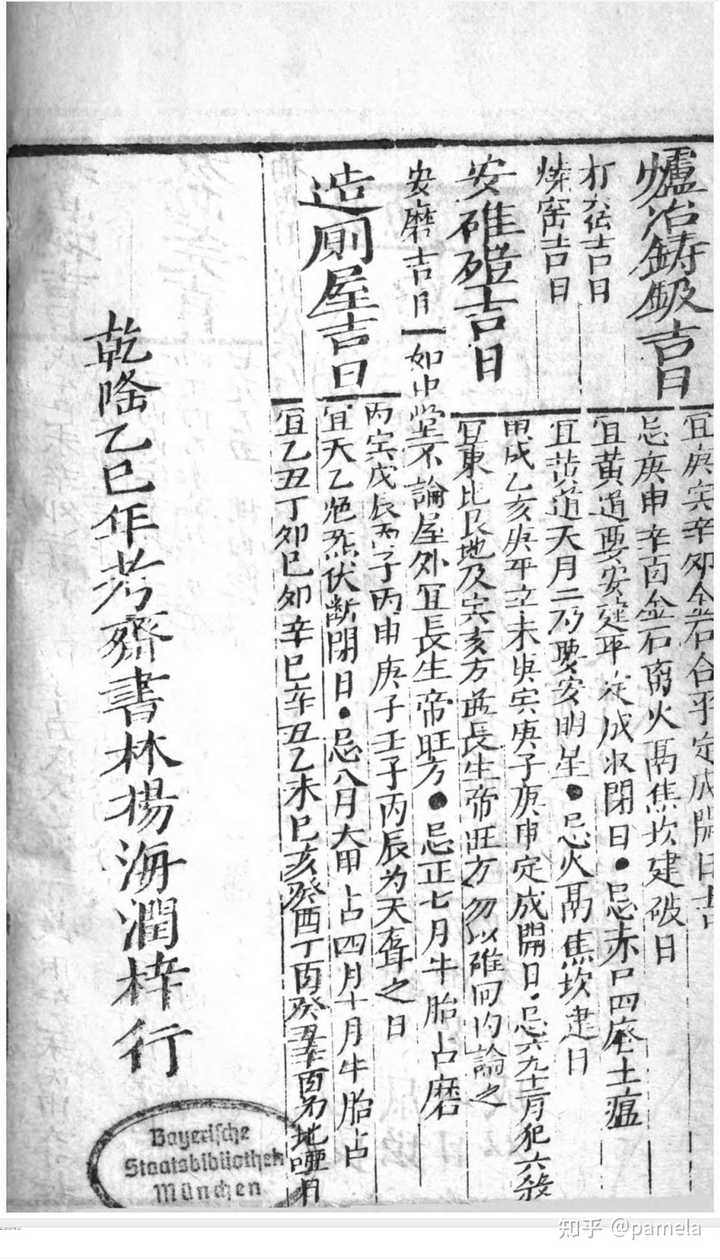 爐冶鑄鈒吉日
宜庚寅辛卯金石合平定成開日吉
忌庚申辛酉金石离火鬲焦坎建破日
打茓吉日
宜黄道要安建平定成收閉日●忌赤口四廢土瘟
燒窑吉日
宜黄道天月二 要安明星●忌火鬲焦坎建日
安碓磑吉日
甲戌乙亥庚 辛未庚寅庚子庚申定成開日●忌六九十二月犯六殺
宜東北艮地及寅亥方 長生帝旺方勿以碓 論之
安磨吉日
如中堂不論屋外宜長生帝旺方●忌正七月牛胎占磨
造厠屋吉日
丙寅戊辰丙子丙申庚子壬子丙辰为天聾之日
宜天乙絶 伏断閉日●忌八月 占四月十月牛胎占
宜乙丑丁卯巳卯辛巳辛丑乙未巳亥癸酉丁酉癸丑辛酉为地啞日
乾隆乙巳年考齋書林揚海潤梓行
Bayerische
Staatsbibliothek
München
知乎 @pamela